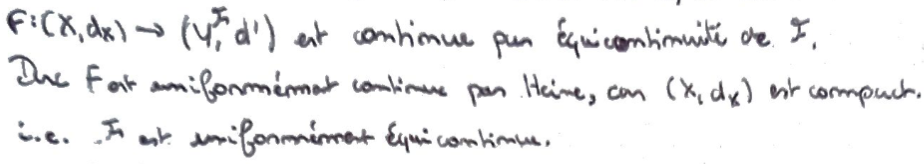 F:(X,dx) → (Y^ℱ, d') est continue par Équicontinuité de ℱ.
Donc F est uniformément continue par Heine, car (X, dx) est compact.
i.e. ℱ est uniformément Équicontinue.